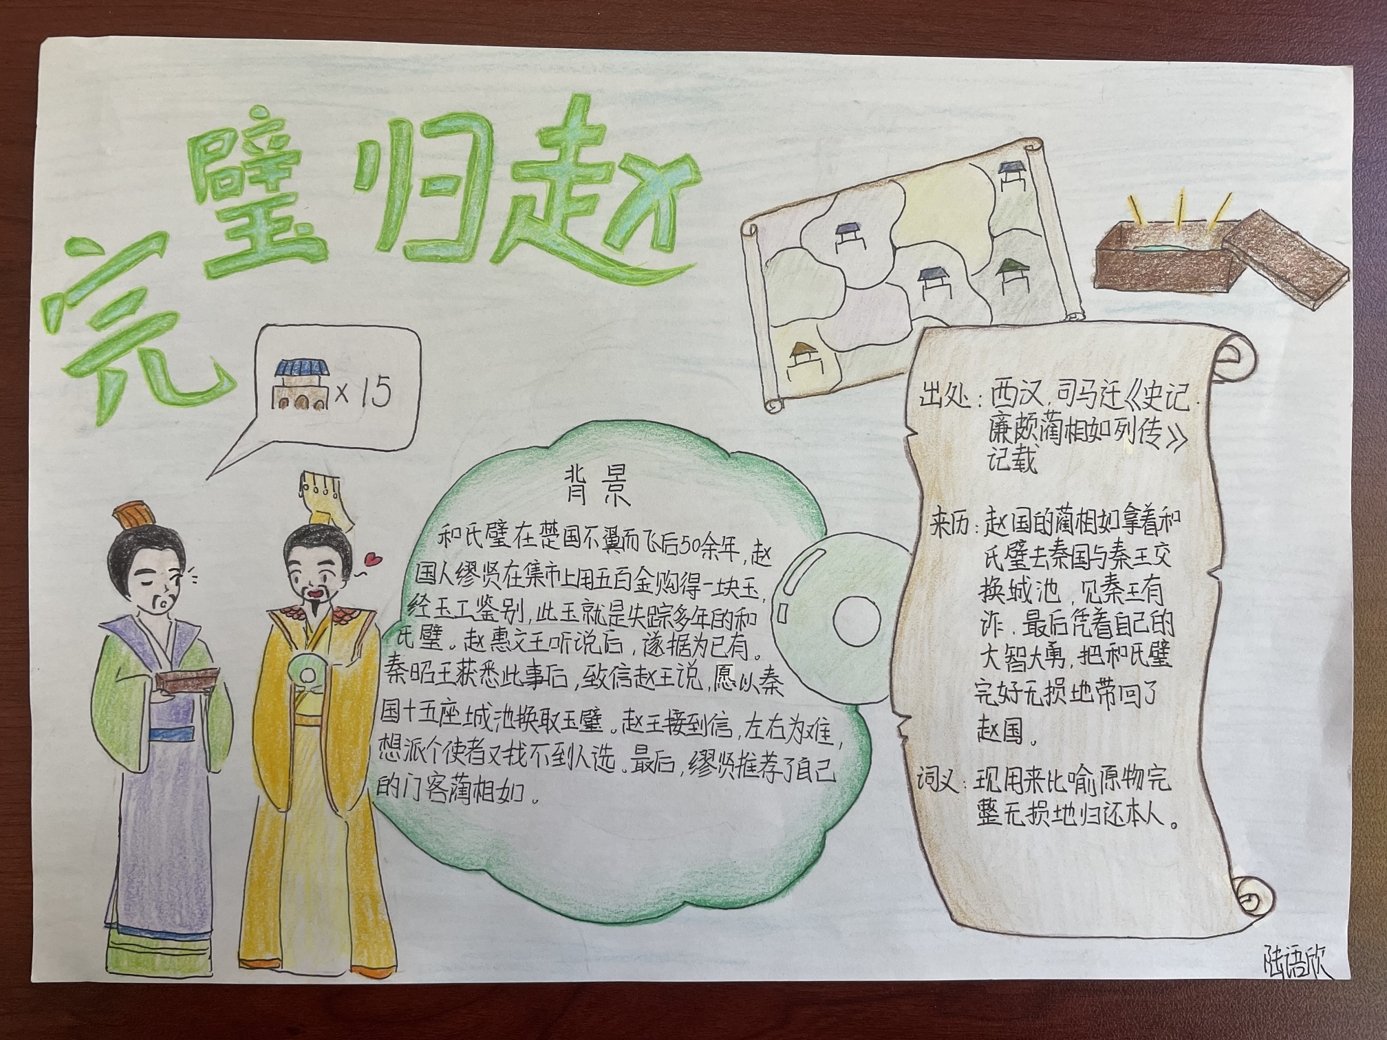 完璧归赵
×15
背景
和氏璧在楚国不翼而飞后50余年，赵
国人缪贤在集市上用五百金购得一块玉，
经玉工鉴别，此玉就是失踪多年的和
氏璧。赵惠文王听说后，遂据为已有。
秦昭王获悉此事后，致信赵王说，愿以秦
国十五座城池换取玉璧。赵王接到信，左右为难，
想派个使者又找不到人选。最后，缪贤推荐了自己
的门客蔺相如。
出处：西汉．司马迁《史记．
廉颇蔺相如列传》
记载
来历：赵国的蔺相如拿着和
氏璧去秦国与秦王交
换城池，见秦王有
诈．最后凭着自己的
大智大勇，把和氏璧
完好无损地带回了
赵国。
词义：现用来比喻原物完
整无损地归还本人。
陆语欣